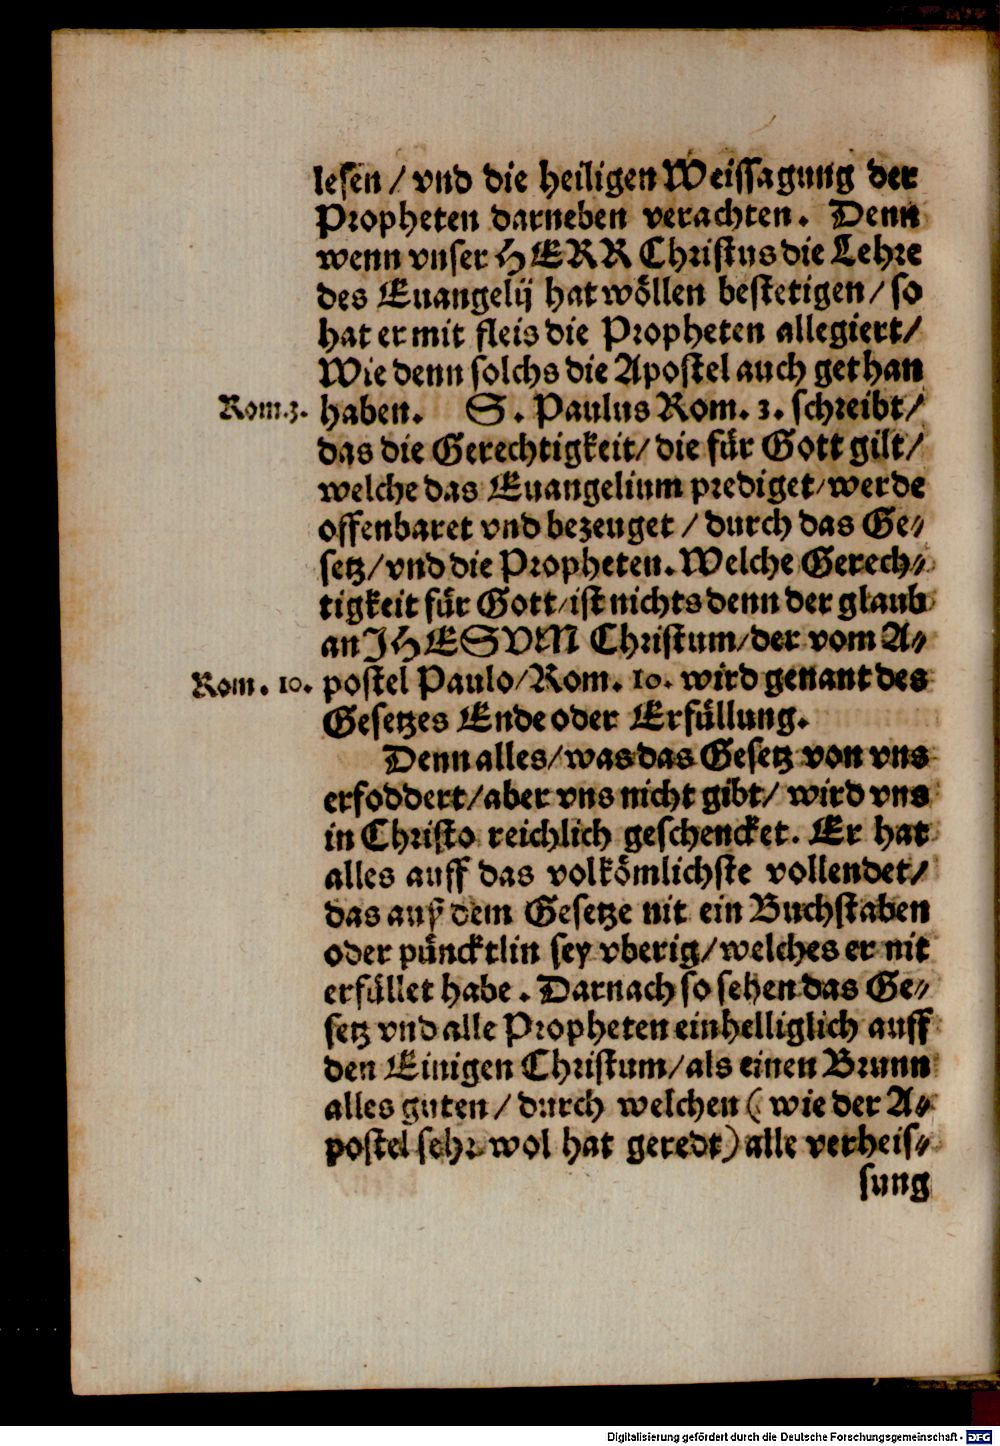 lesen / vnd die heiligen Weissagung der
Propheten darneben verachten. Denn
wenn vnser HERR Christus die Lehre
des Euangelij hat wöllen bestetigen / so
hat er mit fleis die Propheten allegiert /
Wie denn solchs die Apostel auch gethan
Rom. 3. haben. S. Paulus Rom. 3. schreibt /
das die Gerechtigkeit / die für Gott gilt /
welche das Euangelium prediget / werde
offenbaret vnd bezeuget / durch das Ge-
setz / vnd die Propheten. Welche Gerech-
tigkeit für Gott / ist nichts denn der glaub
an JHESVM Christum / der vom A-
Rom. 10. postel Paulo / Rom. 10. wird genant des
Gesetzes Ende oder Erfüllung.
Denn alles / was das Gesetz von vns
erfoddert / aber vns nicht gibt / wird vns
in Christo reichlich geschencket. Er hat
alles auff das volkömlichste vollendet /
das auß dem Gesetze nit ein Buchstaben
oder püncktlin sey vberig / welches er nit
erfüllet habe. Darnach so sehen das Ge-
setz vnd alle Propheten einhelliglich auff
den Einigen Christum / als einen Brunn
alles guten / durch welchen ( wie der A-
postel sehr wol hat geredt ) alle verheis-
sung
Digitalisierung gefördert durch die Deutsche Forschungsgemeinschaft - DFG